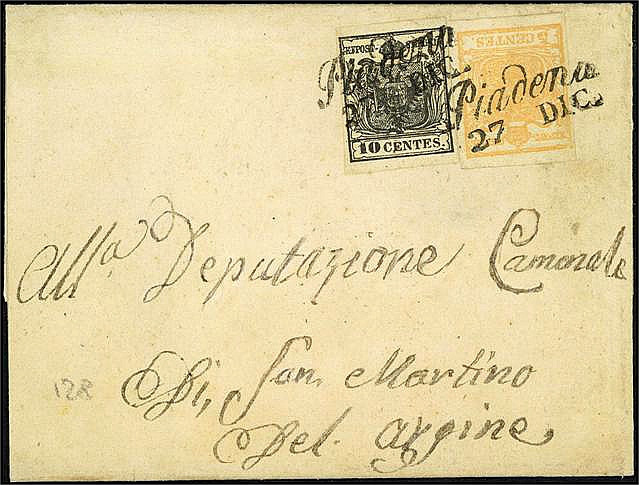 KK.POST-
10 CENTES.
Piadena
27 DIC.
5 CENTES
Piadena
27 DIC.
All.a Deputazione Comonale
Di, San Martino
Del. argine,
128